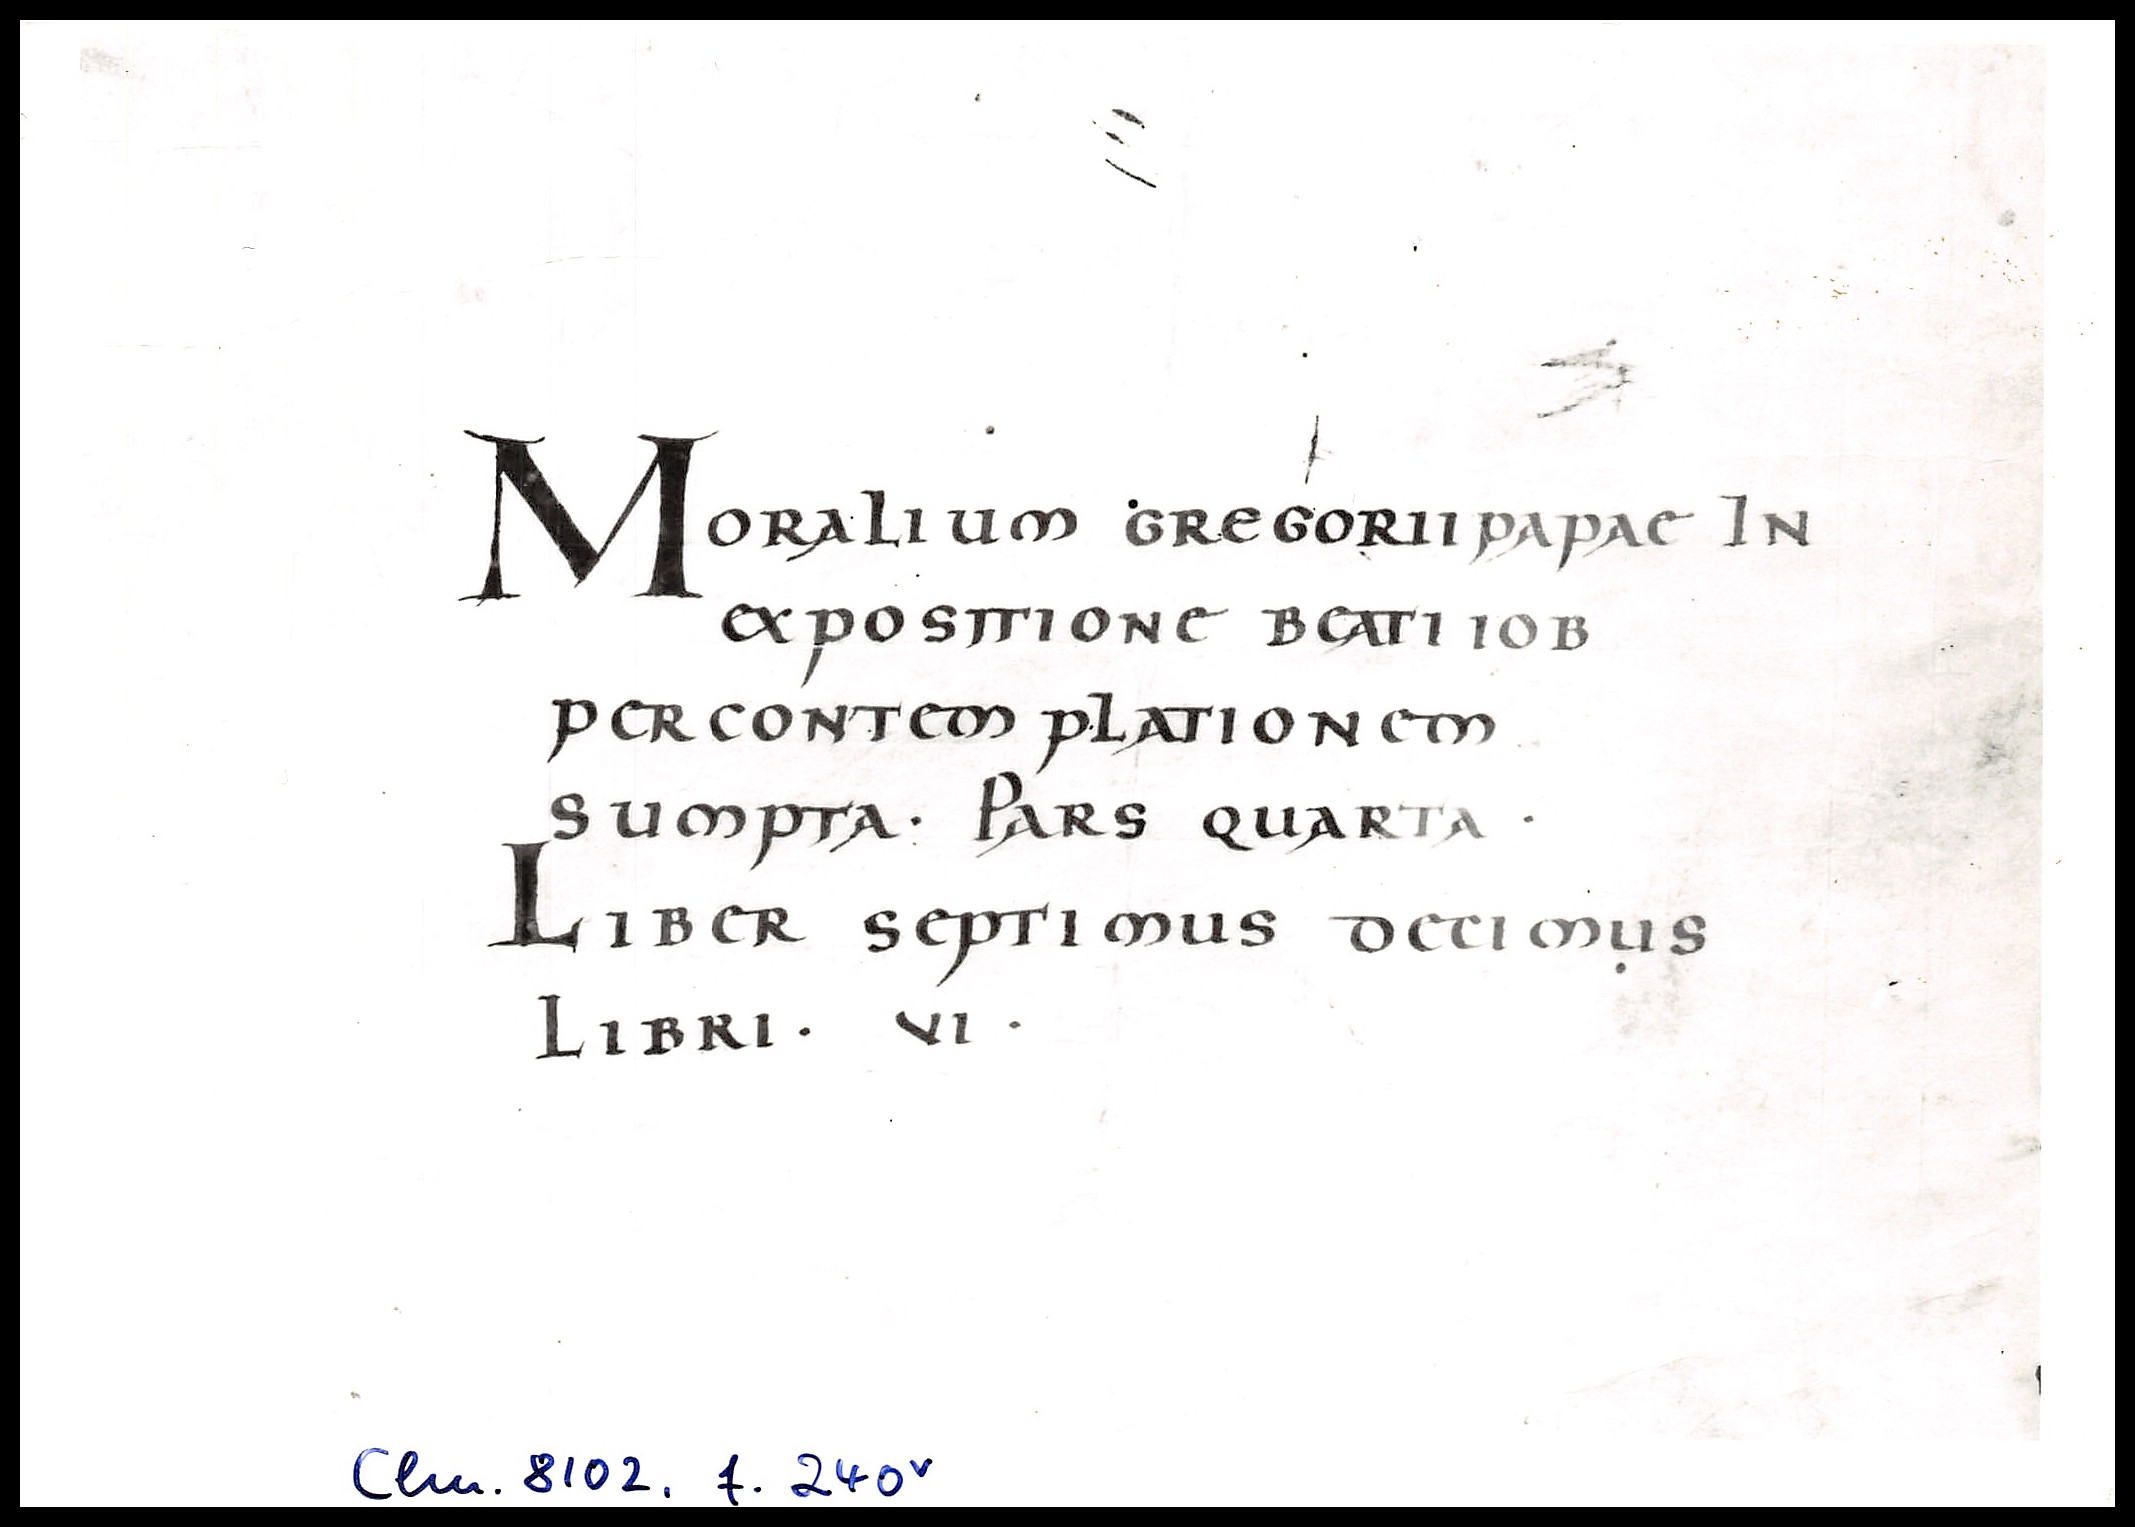 MORALIUM GREGORII PAPAE IN
EXPOSITIONE BEATI IOB
PER CONTEMPLATIONEM
SUMPTA · PARS QUARTA ·
LIBER SEPTIMUS DECIMUS
LIBRI · VI ·
Clm. 8102. f. 240v